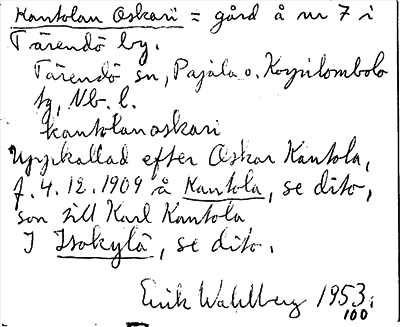 Kantolan Oskari = gård å nr 7 i
Tärendö by.
Tärendö sn, Pajala o. Korpilombolo
tg, Nb. l.
kantolanoskari
Uppkallad efter Oskar Kantola,
f. 4.12.1909 å Kantola, se dito,
son till Karl Kantola
I Isokylä, se dito.
Erik Wahlberg 1953.
100